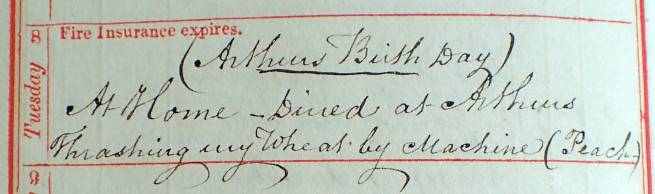 8
Tuesday
Fire Insurance expires.
(Arthurs Birth Day)
At Home - Dined at Arthurs
Thrashing my Wheat by Machine (Peach-
9